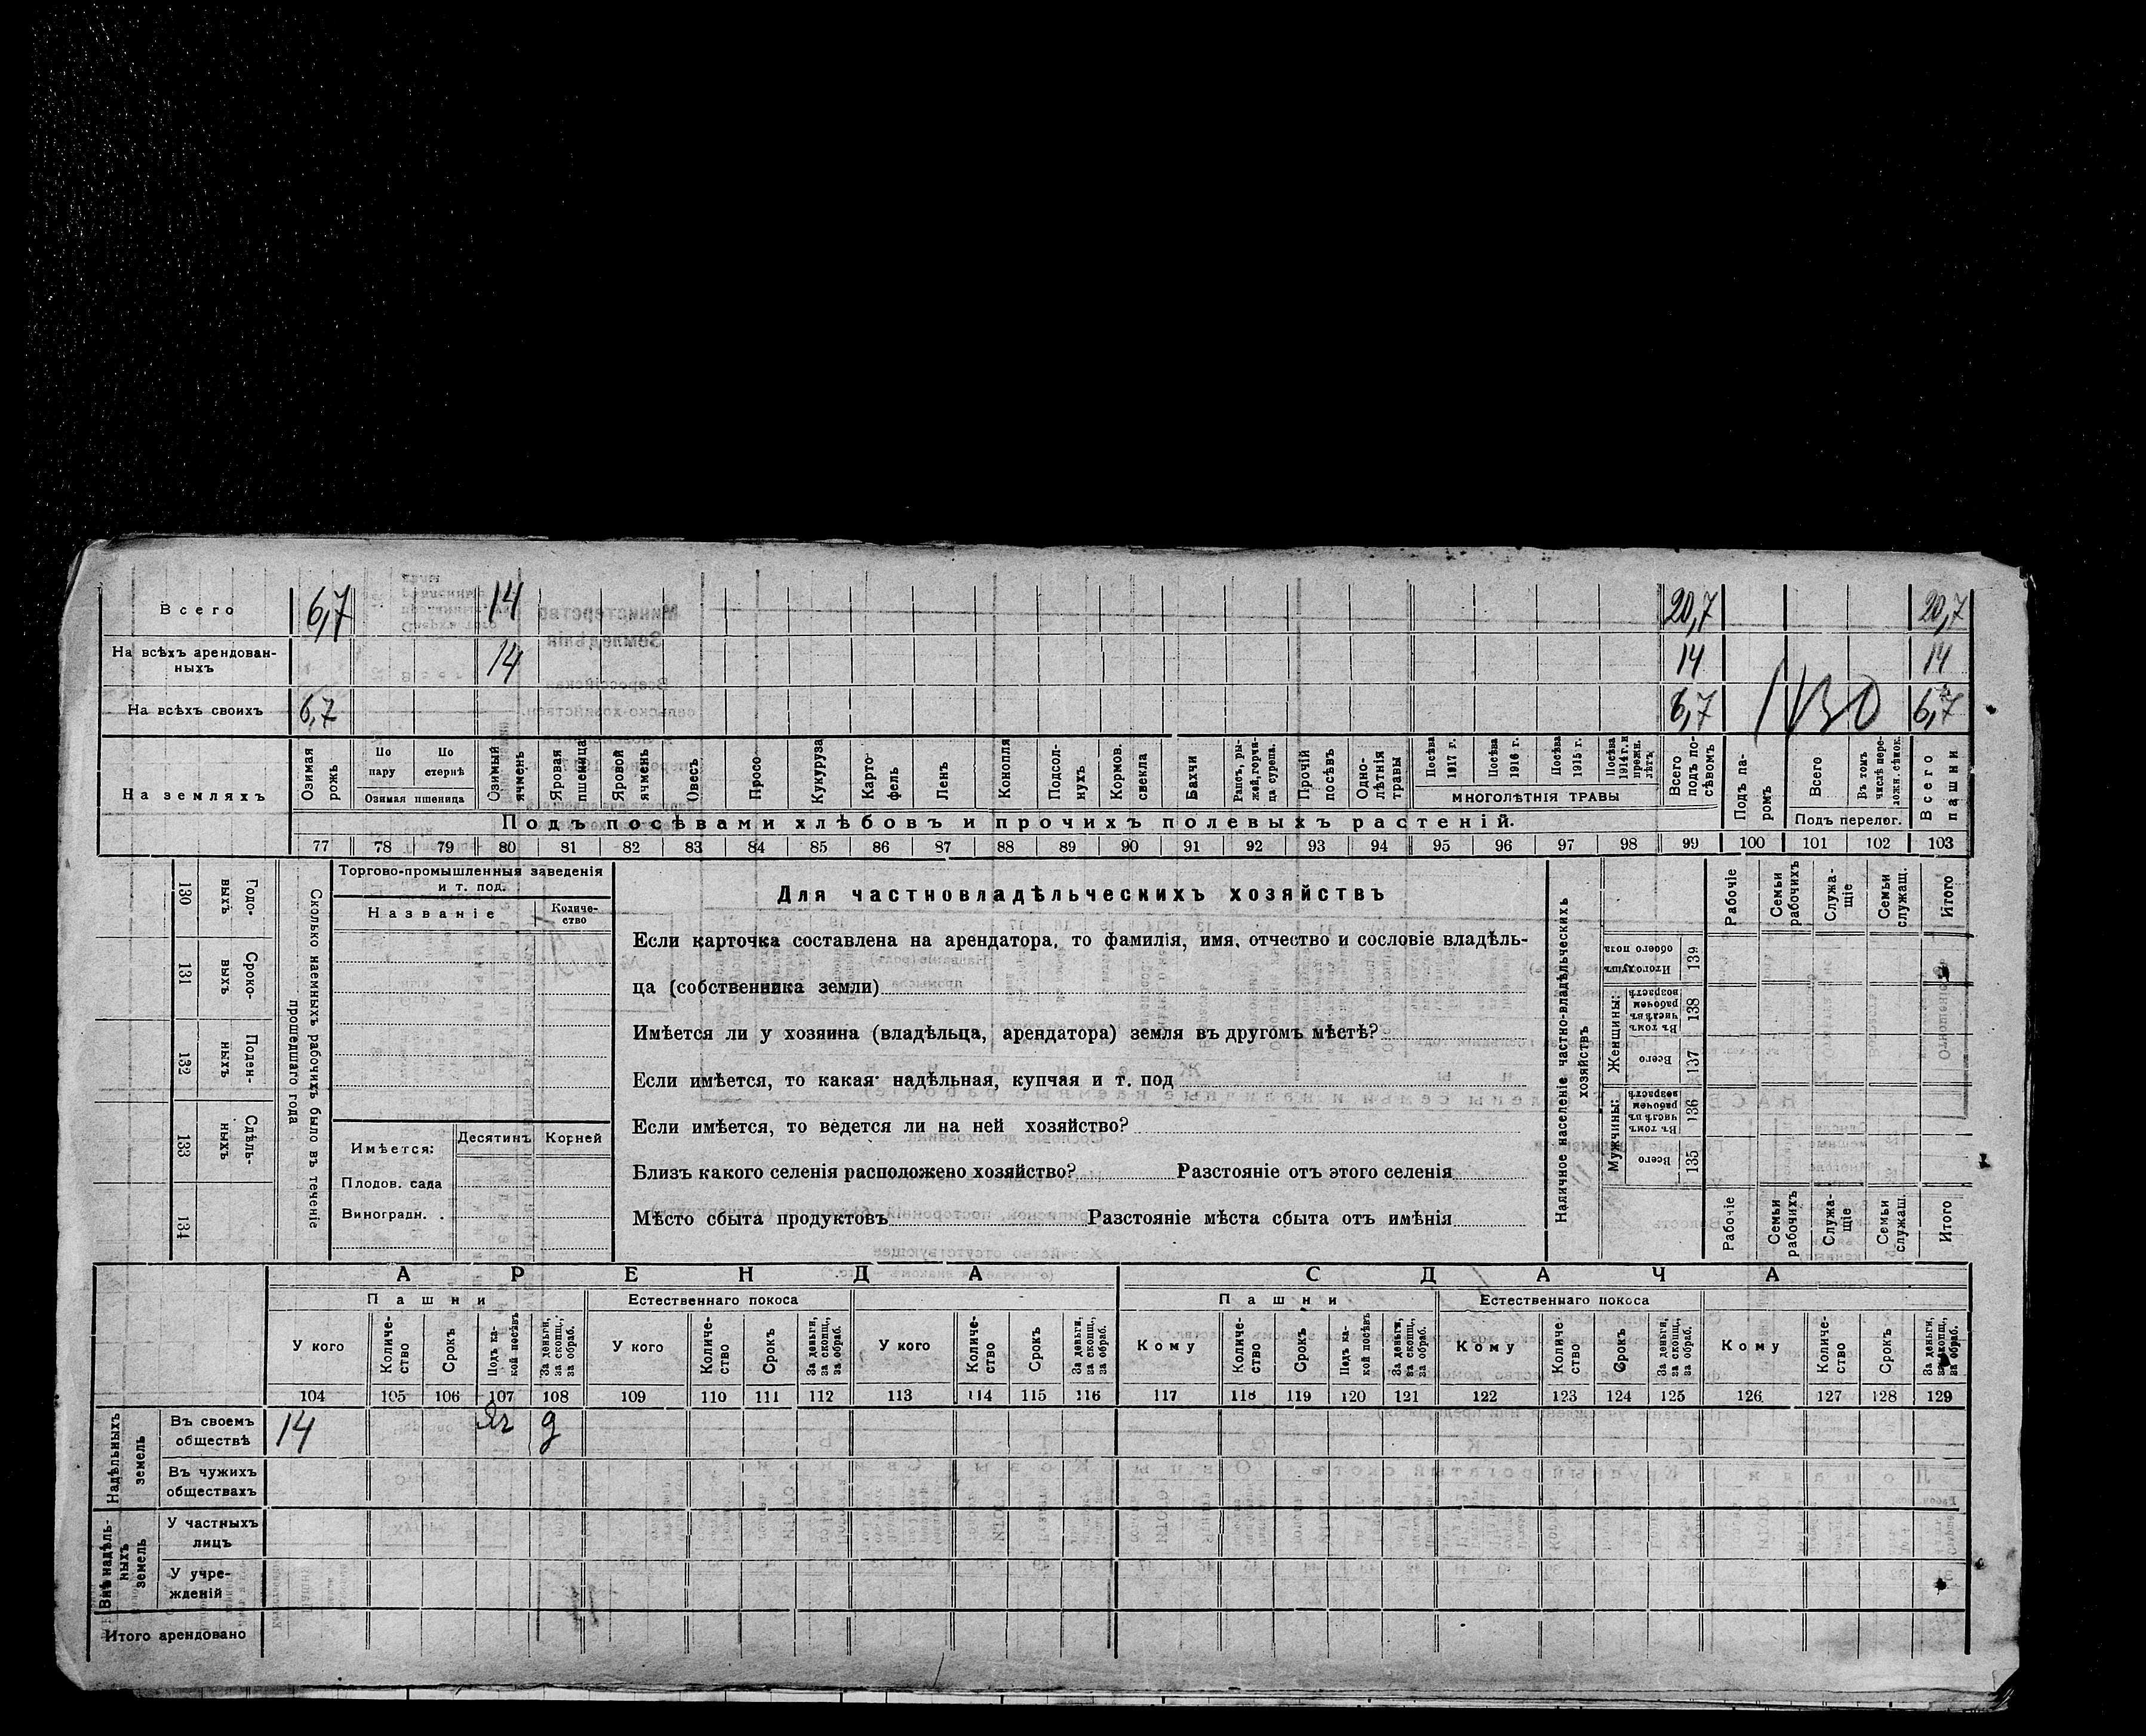 Всего 6,7 14 20,7 20,7
На всѣхъ арендован-
ныхъ 14 14 14
На всѣхъ своихъ 6,7 6,7 6,7
На земляхъ
Озимая рожь
По пару
По стернѣ
Озимая пшеница
Озимый ячмень
Яровая пшеница
Яровой ячмень
Овесъ
Просо
Кукуруза
Карто-
фель
Ленъ
Конопля
Подсол-
нухъ
Кормов. свекла
Бахчи
Рапсъ, ры-
жей, горчи-
ца сурепа.
Прочій посѣвъ
Одно-
лѣтнія травы
Посѣва 1917 г.
Посѣва 1916 г.
Посѣва 1915 г.
Посѣва 1914 г. и прежн. лѣтъ
МНОГОЛѢТНІЯ ТРАВЫ
Всего подъ по-
сѣвомъ
Подъ па-
ромъ
Всего
Въ томъ числѣ пере-
ложн. сѣнок.
Подъ перелог.
Всего пашни
Подъ посѣвами хлѣбовъ и прочихъ полевыхъ растеній.
77 78 79 80 81 82 83 84 85 86 87 88 89 90 91 92 93 94 95 96 97 98 99 100 101 102 103
130 Годо-
выхъ
131 Сроко-
выхъ
132 Поден-
ныхъ
133 Сдѣль-
ныхъ
134
Сколько наемныхъ рабочихъ было въ теченіе
прошедшаго года
Торгово-промышленныя заведенія
и т. под.
Названіе
Количе-
ство
Имѣется:
Десятинъ Корней
Плодов. сада
Виноградн.
Для частновладѣльческихъ хозяйствъ
Если карточка составлена на арендатора, то фамилія, имя, отчество и сословіе владѣль-
ца (собственника земли)
Имѣется ли у хозяина (владѣльца, арендатора) земля въ другомъ мѣстѣ?
Если имѣется, то какая: надѣльная, купчая и т. под
Если имѣется, то ведется ли на ней хозяйство?
Близъ какого селенія расположено хозяйство? Разстояніе отъ этого селенія
Мѣсто сбыта продуктовъ Разстояніе мѣста сбыта отъ имѣнія
Наличное населеніе частно-владѣльческихъ
хозяйствъ
Рабочіе
Семьи рабочихъ
Служа-
щіе
Семьи служащ.
Итого
Итого душъ обоего пола 139
Женщины:
Въ томъ числѣ въ рабочемъ возрастѣ 138
Всего 137
Мужчины:
Въ томъ числѣ въ рабочемъ возрастѣ 136
Всего 135
Рабочіе
Семьи рабочихъ
Служа-
щіе
Семьи служащ.
Итого
АРЕНДА СДАЧА
Пашни Естественнаго покоса Пашни Естественнаго покоса
У кого
Количе-
ство
Срокъ
Подъ ка-
кой посѣвъ
За деньги, за скопщ., за обраб.
У кого
Количе-
ство
Срокъ
За деньги, за скопщ., за обраб.
У кого
Количе-
ство
Срокъ
За деньги, за скопщ., за обраб.
Кому
Количе-
ство
Срокъ
Подъ ка-
кой посѣвъ
За деньги, за скопщ., за обраб.
Кому
Количе-
ство
Срокъ
За деньги, за скопщ., за обраб.
Кому
Количе-
ство
Срокъ
За деньги, за скопщ., за обраб.
104 105 106 107 108 109 110 111 112 113 114 115 116 117 118 119 120 121 122 123 124 125 126 127 128 129
Надѣльныхъ
земель
Въ своемъ
обществѣ 14 Яч д
Въ чужихъ
обществахъ
Внѣ надѣль-
ныхъ
земель
У частныхъ
лицъ
У учре-
жденій
Итого арендовано